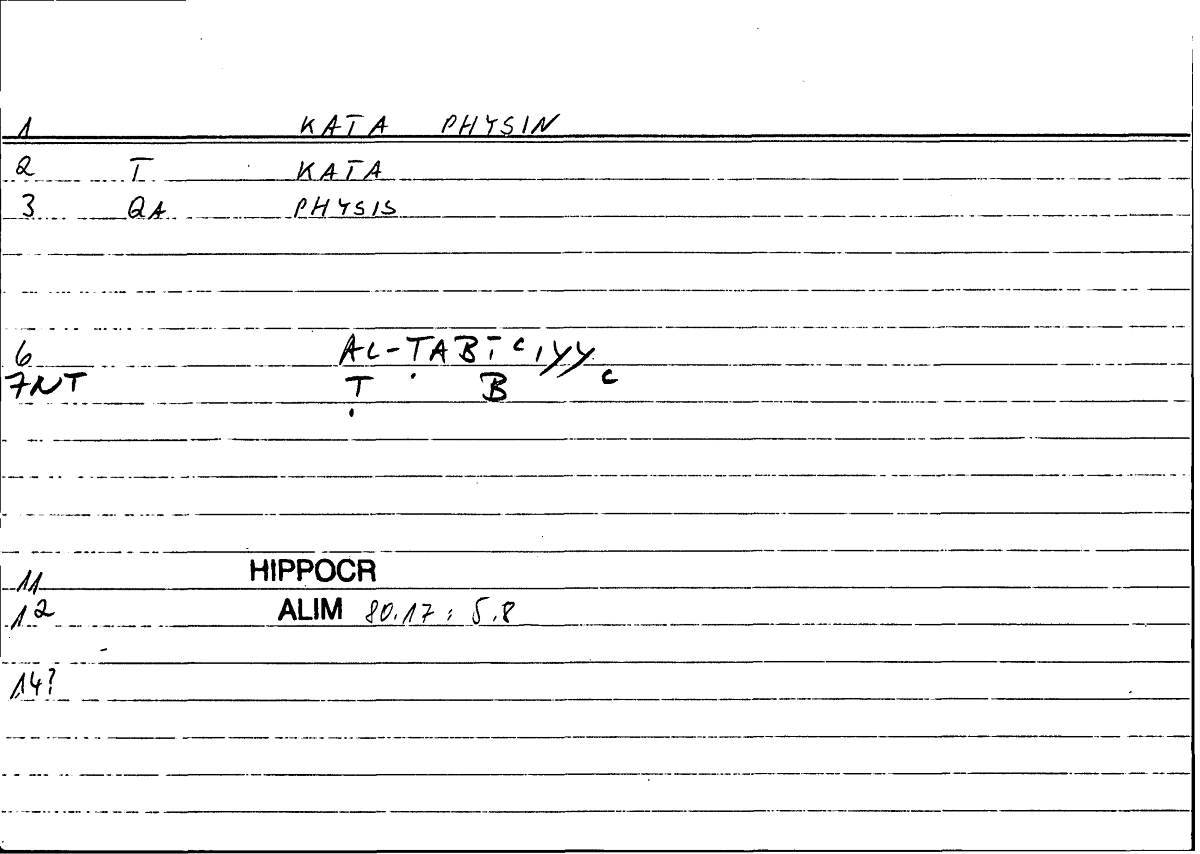 1 KATA PHYSIN
2 T KATA
3 QA PHYSIS
6 AL-ṬABĪʿIYY
7NT Ṭ B ʿ
11 HIPPOCR
12 ALIM 80.17 : 5.8
14?